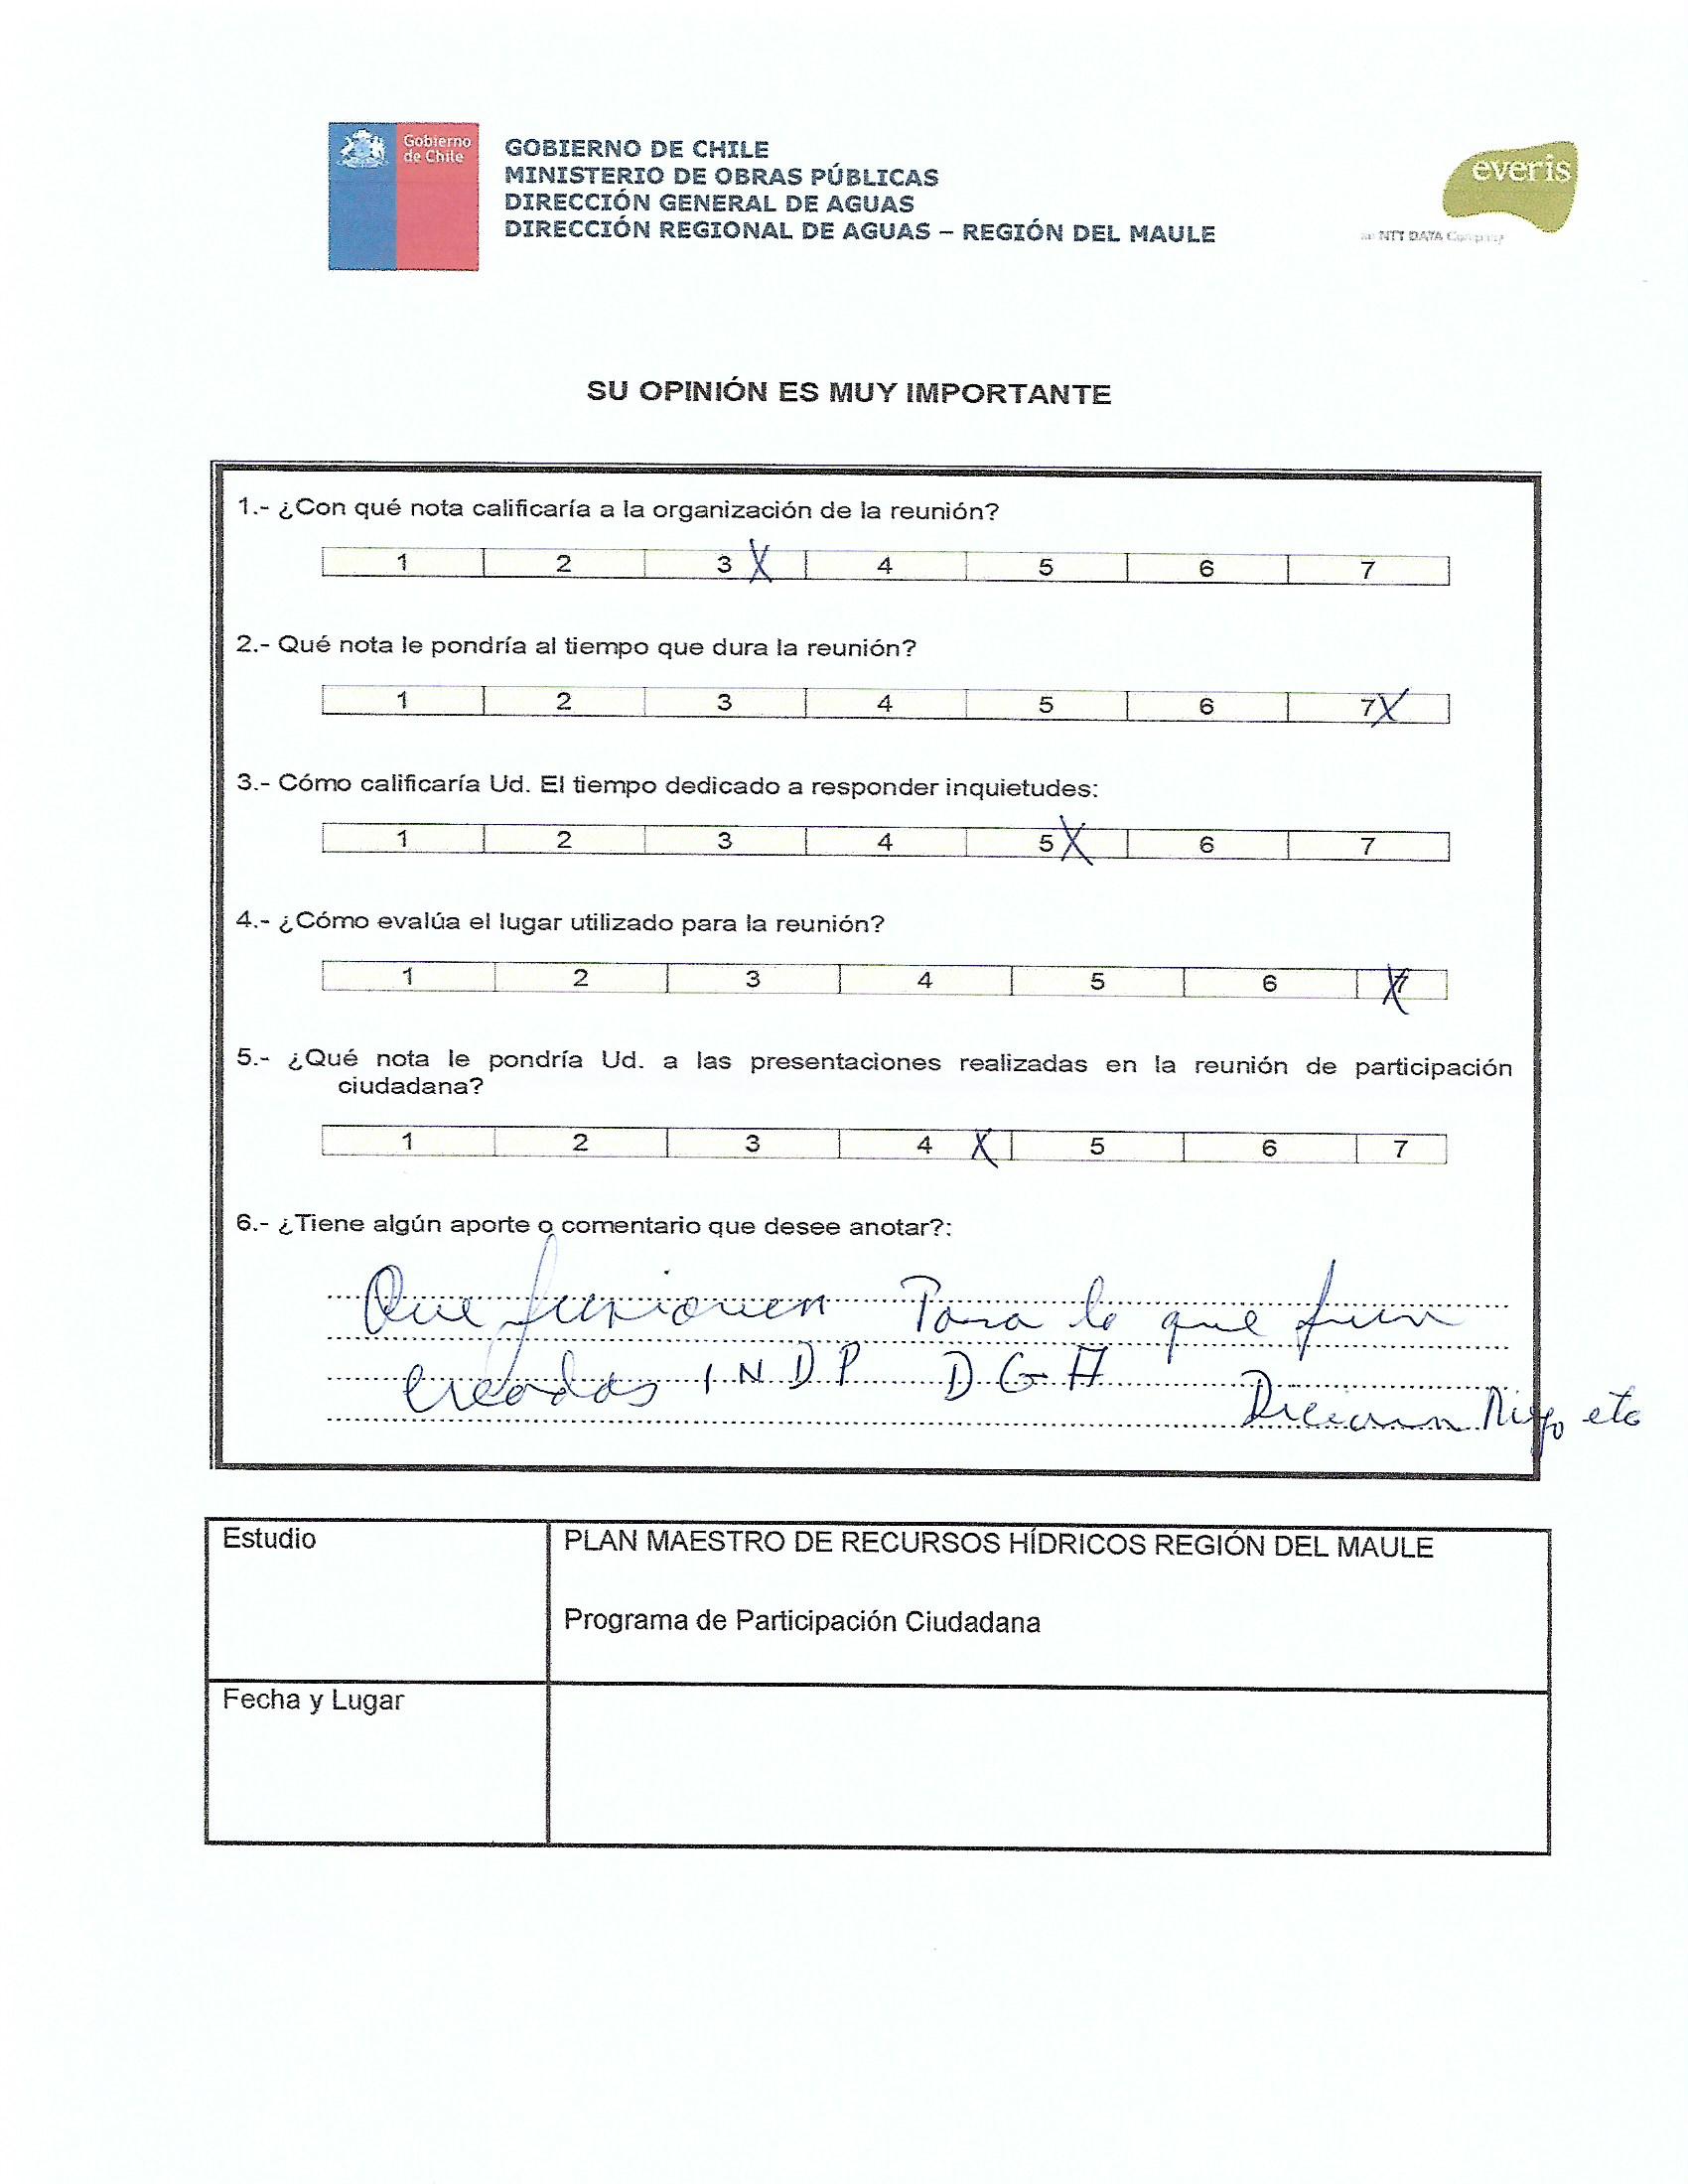 Gobierno
de Chile
GOBIERNO DE CHILE
MINISTERIO DE OBRAS PÚBLICAS
DIRECCIÓN GENERAL DE AGUAS
DIRECCIÓN REGIONAL DE AGUAS – REGIÓN DEL MAULE
everis
an NTT DATA Company
SU OPINIÓN ES MUY IMPORTANTE
1.- ¿Con qué nota calificaría a la organización de la reunión?
1 2 3 X 4 5 6 7
2.- Qué nota le pondría al tiempo que dura la reunión?
1 2 3 4 5 6 7 X
3.- Cómo calificaría Ud. El tiempo dedicado a responder inquietudes:
1 2 3 4 5 X 6 7
4.- ¿Cómo evalúa el lugar utilizado para la reunión?
1 2 3 4 5 6 7 X
5.- ¿Qué nota le pondría Ud. a las presentaciones realizadas en la reunión de participación
ciudadana?
1 2 3 4 X 5 6 7
6.- ¿Tiene algún aporte o comentario que desee anotar?:
Que funcionen Para lo que fueron
creadas INDP DGA Riego etc
Estudio
PLAN MAESTRO DE RECURSOS HÍDRICOS REGIÓN DEL MAULE
Programa de Participación Ciudadana
Fecha y Lugar